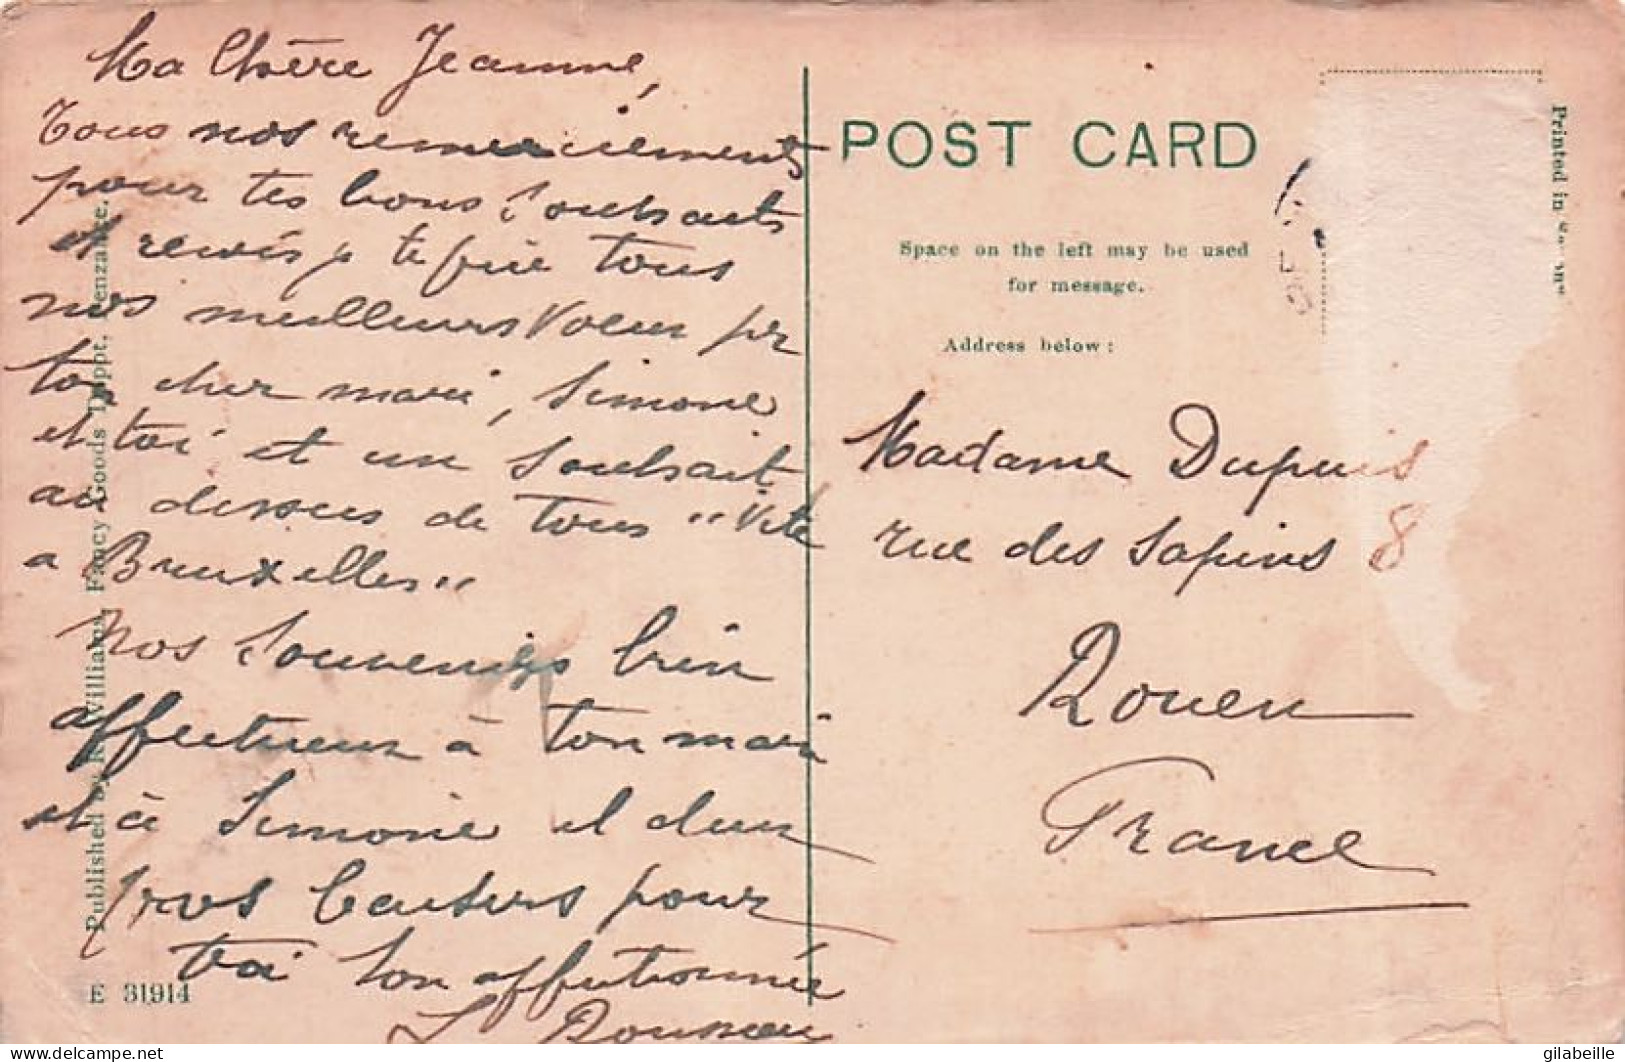 Ma Chère Jeanne,
Tous nos remerciements
pour tes bons souhaits
et je te prie tous
nos meilleurs Voeux pr
ton cher mari, Simone
et toi et un souhait
au dessus de tous "Vite
a Bruxelles"
Nos souvenirs bien
affectueux à ton mari
et à Simone et deux
gros baisers pour
toi ton affectionnée
L Rousseau
Published by R. Williams, Fancy Goods Deppt, Penzance.
E 31914
POST CARD
Space on the left may be used
for message.
Address below:
Printed in
Madame Dupuis
rue des Sapins 8
Rouen
France
gilabeille